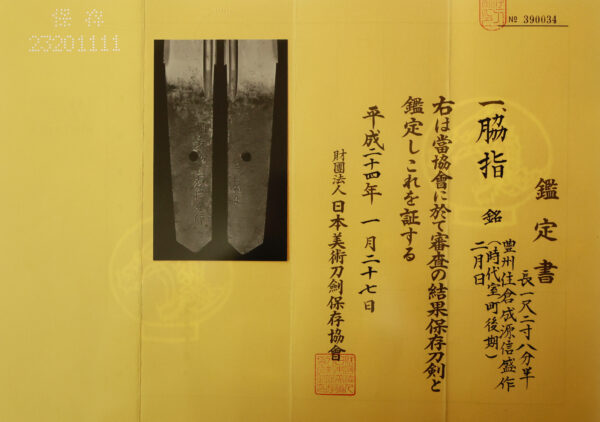 保存
23201111
№ 390034
鑑定書
一、脇指 銘 豊州住倉成源信盛作
二月日
(時代室町後期)
長一尺二寸八分半
右は當協會に於て審査の結果保存刀剣と
鑑定しこれを証する
平成二十四年 一月二十七日
財團法人 日本美術刀劍保存協會